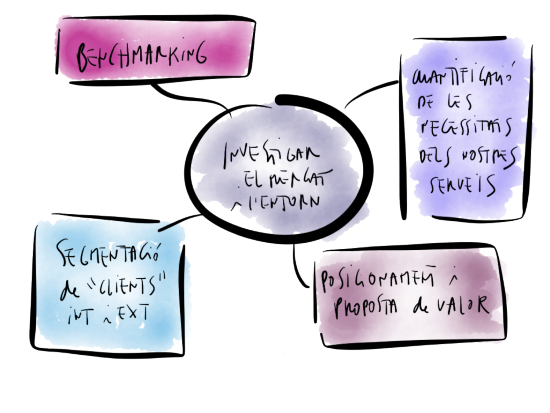 BENCHMARKING
QUANTIFICACIÓ
DE LES
NECESSITATS
DELS NOSTRES
SERVEIS
INVESTIGAR
EL MERCAT
i L'ENTORN
SEGMENTACIÓ
de "CLIENTS"
INT i EXT
POSICIONAMENT i
PROPOSTA de VALOR